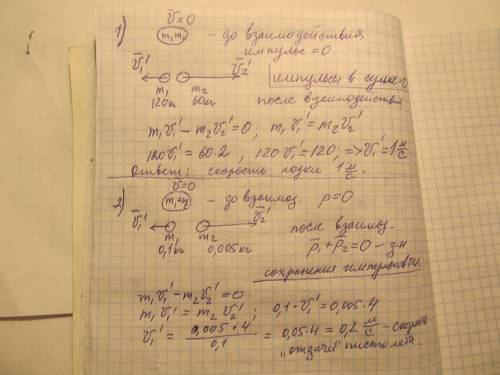 1) v̄=0
m₁m₂ - до взаимодействия
импульс = 0
v̄₁' v̄₂'
m₁ m₂ импульсы в сумме=0
120кг 60кг после взаимодейств.
m₁v₁' - m₂v₂' = 0; m₁v₁' = m₂v₂'
120v₁' = 60·2, 120v₁' = 120, => v₁' = 1 м/с
Ответ: скорость лодки 1 м/с.
2) v̄=0
m₁+m₂ - до взаимод. p=0
v̄₁' v̄₂'
m₁ m₂ после взаимод.
0,1кг 0,005кг p̄₁+p̄₂=0 - з-н
сохранения импульсов тел.
m₁v₁' - m₂v₂' = 0
m₁v₁' = m₂v₂'; 0,1·v₁' = 0,005·4
v₁' = 0,005·4/0,1 = 0,05·4 = 0,2 м/с - скорость
„отдачи" пистолета.